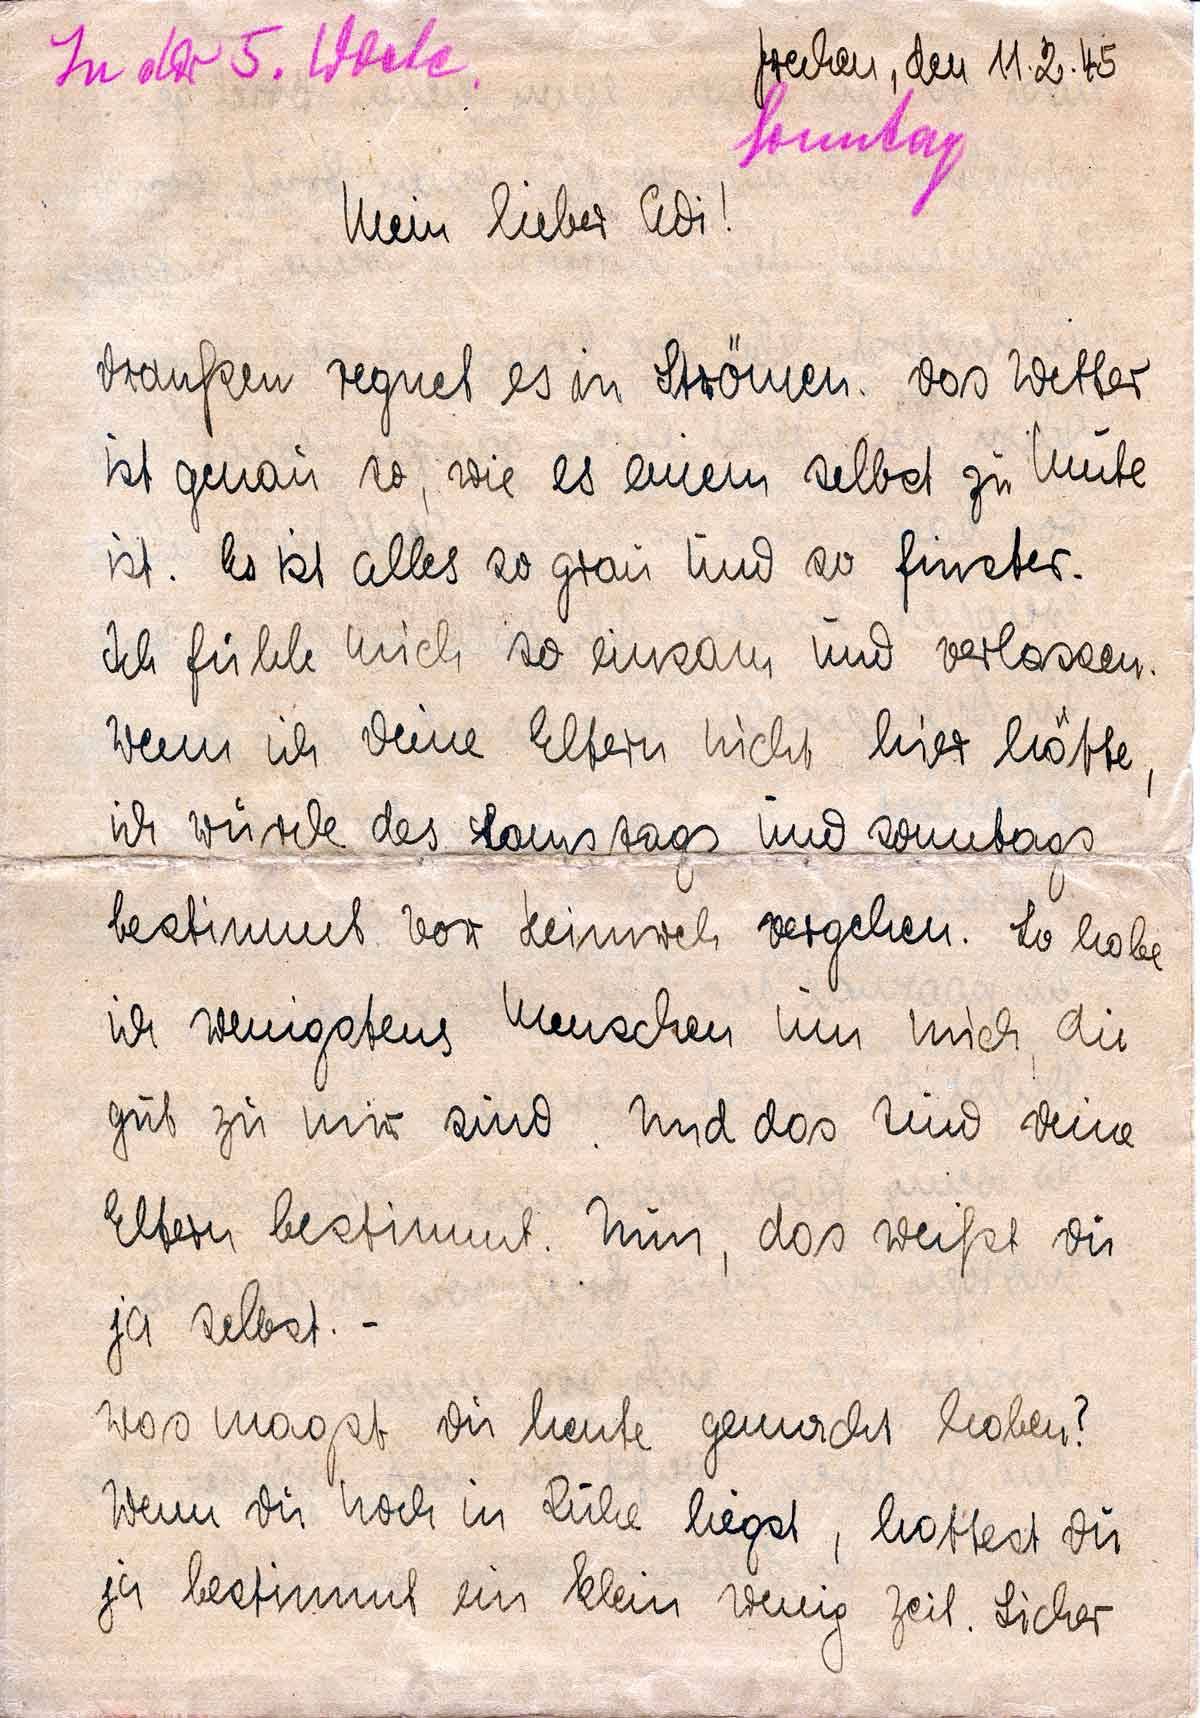 In der 5. Woche.
Frechen, den 11.2.45
Sonntag
Mein lieber Edi!
draußen regnet es in Strömen. Das Wetter
ist genau so, wie es einem selbst zu Mute
ist. Es ist alles so grau und so finster.
Ich fühle mich so einsam und verlassen.
Wenn ich deine Eltern nicht hier hätte,
ich würde des Samstags und Sonntags
bestimmt vor Heimweh vergehen. So habe
ich wenigstens Menschen um mich, die
gut zu mir sind. Und das sind deine
Eltern bestimmt. Nun, das weißt du
ja selbst. -
Was magst du heute gemacht haben?
Wenn du noch in Ruhe liegst, hattest du
ja bestimmt ein klein wenig Zeit. Sicher